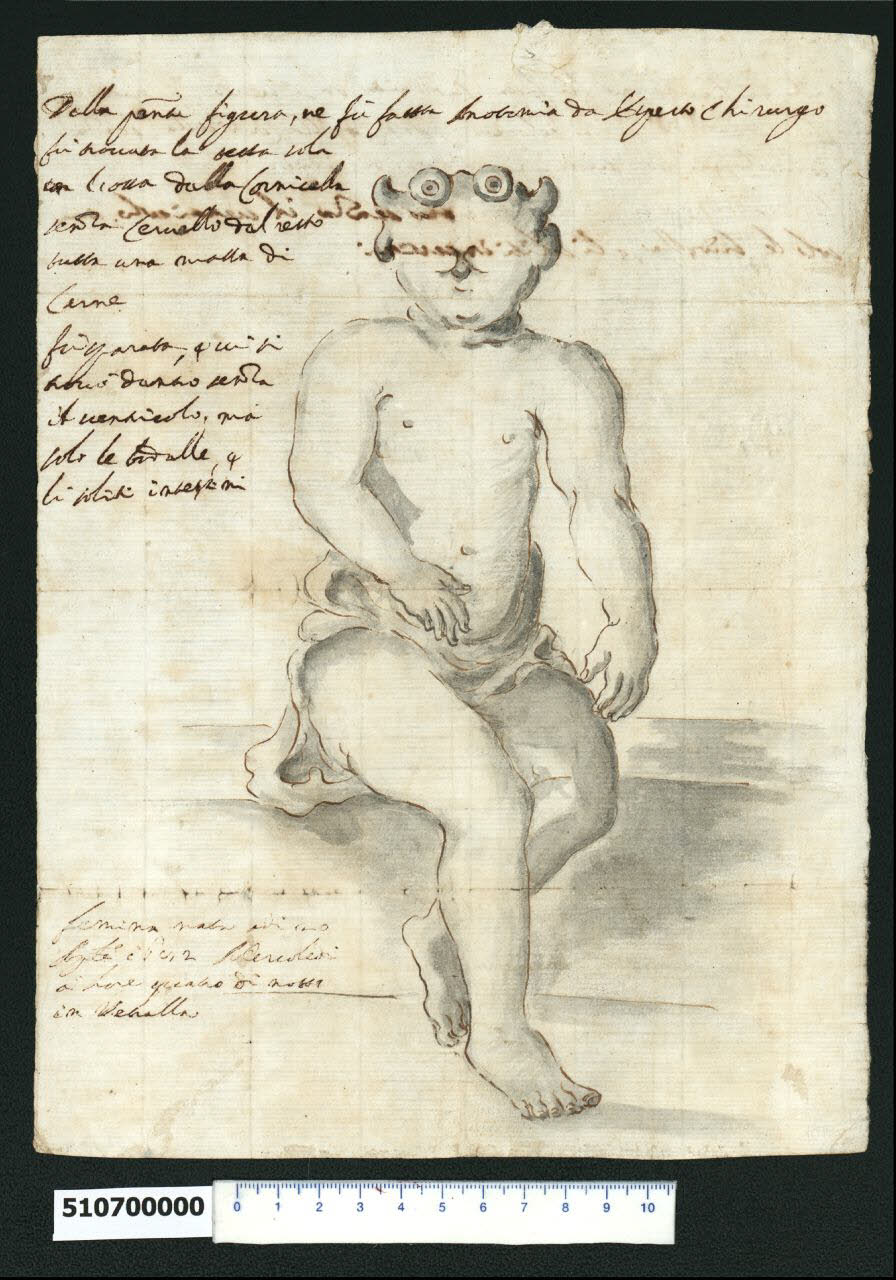 Della pñte figura, ne fù fatta Anotomia da Esperto Chirurgo
fù trovata la testa sola
con l'ossa della Cornicella
senza Cervello del resto
tutta una massa di
Carne
fù sparata, e vi si
trovò dentro senza
il ventricolo, mà
solo le budelle, e
li soliti intestini
femina nata adi
Mercoledi
a hore quatro di notte
in Vetralla
510700000
0 1 2 3 4 5 6 7 8 9 10